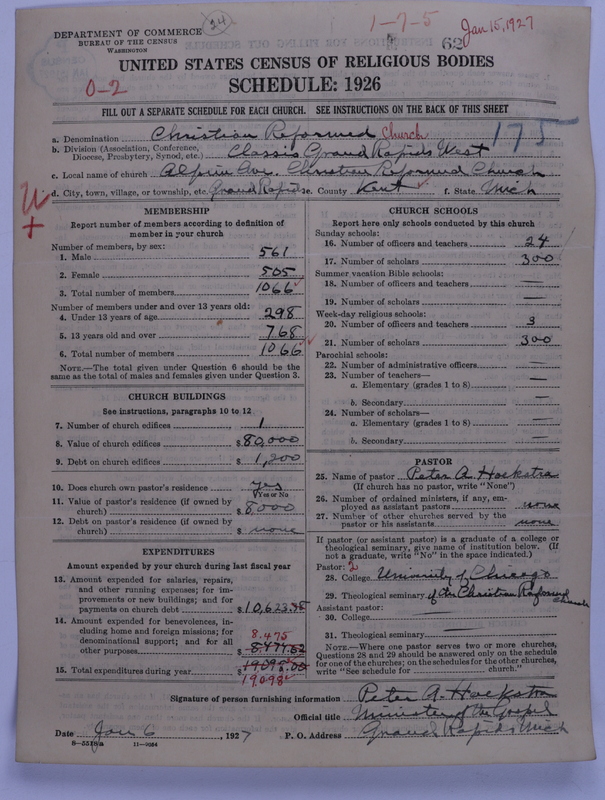 DEPARTMENT OF COMMERCE
BUREAU OF THE CENSUS
WASHINGTON
24
1-7-5
62
Jan 15, 1927
0-2
UNITED STATES CENSUS OF RELIGIOUS BODIES
SCHEDULE: 1926
FILL OUT A SEPARATE SCHEDULE FOR EACH CHURCH. SEE INSTRUCTIONS ON THE BACK OF THIS SHEET
a. Denomination Christian Reformed Church
175
b. Division (Association, Conference, Diocese, Presbytery, Synod, etc.) Classis Grand Rapids West
c. Local name of church Alpine Ave. Christian Reformed Church
d. City, town, village, or township, etc. Grand Rapids e. County Kent f. State Mich
MEMBERSHIP
Report number of members according to definition of member in your church
Number of members, by sex:
1. Male 561
2. Female 505
3. Total number of members 1066
Number of members under and over 13 years old:
4. Under 13 years of age 298
5. 13 years old and over 768
6. Total number of members 1066
NOTE.—The total given under Question 6 should be the same as the total of males and females given under Question 3.
CHURCH BUILDINGS
See instructions, paragraphs 10 to 12
7. Number of church edifices 1
8. Value of church edifices $80,000
9. Debt on church edifices $1,200
10. Does church own pastor's residence yes
Yes or No
11. Value of pastor's residence (if owned by church) $8,000
12. Debt on pastor's residence (if owned by church) $ none
EXPENDITURES
Amount expended by your church during last fiscal year
13. Amount expended for salaries, repairs, and other running expenses; for improvements or new buildings; and for payments on church debt $10,623.95
14. Amount expended for benevolences, including home and foreign missions; for denominational support; and for all other purposes 8.475
15. Total expenditures during year $19,098.00
19,098
CHURCH SCHOOLS
Report here only schools conducted by this church
Sunday schools:
16. Number of officers and teachers 24
17. Number of scholars 300
Summer vacation Bible schools:
18. Number of officers and teachers —
19. Number of scholars —
Week-day religious schools:
20. Number of officers and teachers 3
21. Number of scholars 300
Parochial schools:
22. Number of administrative officers —
23. Number of teachers—
a. Elementary (grades 1 to 8) —
b. Secondary —
24. Number of scholars—
a. Elementary (grades 1 to 8) —
b. Secondary —
PASTOR
25. Name of pastor Peter A. Hoekstra
(If church has no pastor, write "None")
26. Number of ordained ministers, if any, employed as assistant pastors none
27. Number of other churches served by the pastor or his assistants none
If pastor (or assistant pastor) is a graduate of a college or theological seminary, give name of institution below. (If not a graduate, write "No" in the space indicated.)
Pastor: 2
28. College University of Chicago
29. Theological seminary of the Christian Reformed Church
Assistant pastor:
30. College
31. Theological seminary —
NOTE.—Where one pastor serves two or more churches, Questions 28 and 29 should be answered only on the schedule for one of the churches; on the schedules for the other churches, write "See schedule for church."
Signature of person furnishing information Peter A. Hoekstra
Official title Minister of the Gospel
Date Jan 6, 1927 P. O. Address Grand Rapids Mich
8-5518a 11-9034